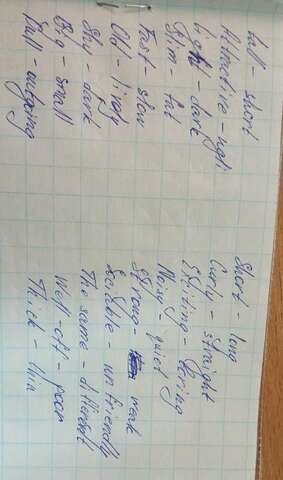 tall - short
Attractive - ugli
light - dark
Slim - fat
Fast - slow
Old - livly
Shy - dark
Big - small
Dull - outgoing
Short - long
Curly - straight
Exiting - boring
Noisy - quiet
Strong - weak
Sociable - unfriendly
The same - different
Well-off - poor
Thick - thin